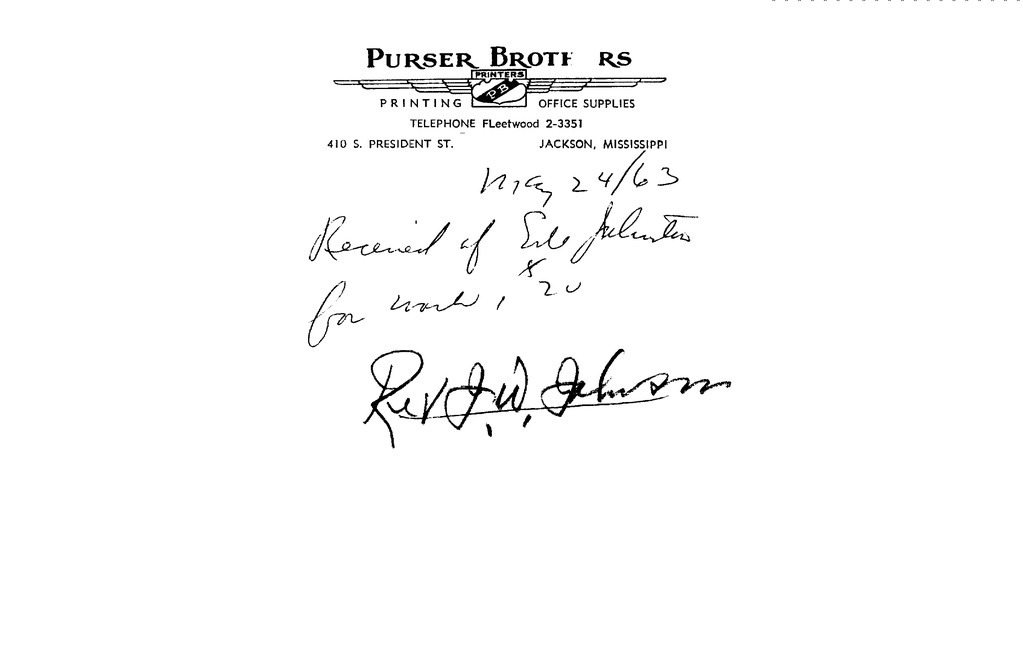 PURSER BROTH RS
PRINTERS
PB
PRINTING OFFICE SUPPLIES
TELEPHONE FLeetwood 2-3351
410 S. PRESIDENT ST. JACKSON, MISSISSIPPI
May 24/63
Received of Erle Johnston
for work, $20
Rev J. W. Johnson